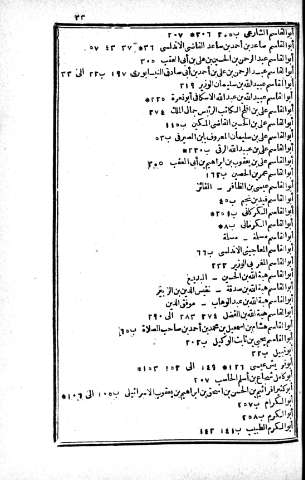 ٢٣
أبو القاسم الشارعي ب٢٠٥ ٢٠٦* ٢٠٧
أبو القاسم صاعد بن أحمد بن صاعد القاضي الأندلسي ٣٦* ٣٧ ٤٣ ٥٧
أبو القاسم عبد الرحمن بن الحسين بن علي بن أبي العقب ٢٠٥
أبو القاسم عبد الرحمن بن علي بن أحمد بن أبي صادق النيسابوري ١٩٧ ب٢٢ الى ٢٣
أبو القاسم عبيد الله بن سليمان الوزير ٢١٩
أبو القاسم عبيد الله بن عبد الله الاسكافي أبو نعرة ٢٢٥*
أبو القاسم علي بن أفلح الكاتب الرئيس جمال الملك ٢٧٤
أبو القاسم علي بن الحسين القاضي المكين ب١١٥
أبو القاسم علي بن سليمان المعروف بابن الصيرفي ب٥٣
أبو القاسم علي بن عبد الله الرقي ب٢٣٠*
أبو القاسم علي بن يعقوب بن ابراهيم بن أبي العقب ٢٠٥
أبو القاسم عمر بن الحسين ب١٦٢
أبو القاسم عيسى بن الظافر - الفائز
أبو القاسم فيد بن نجم ب٤٥
أبو القاسم الكركاني ب٢٥٤*
أبو القاسم الكرماني ب٨*
أبو القاسم مسلمة - مسلمة
أبو القاسم المعاجيني الأندلسي ب٦٦
أبو القاسم المغربي الوزير ٢٣٣
أبو القاسم هبة الله بن الحسين - البديع
أبو القاسم هبة الله بن صدقة - نفيس الدين بن الزبير
أبو القاسم هبة الله بن عبد الوهاب - موفق الدين
أبو القاسم هبة الله بن الفضل ٢٧٤ ٢٨٣ الى ٢٩٠
أبو القاسم هشام بن اسمعيل بن محمد بن أحمد بن صاحب الصلاة ب٦٥
أبو القاسم يحيى بن ثابت الوكيل ب٢٠٢
أبو قبيل ب٢٢
أبو قريش عيسى ١٢٦* ١٤٩ الى ١٥٢ ١٥٣*
أبو كامل شجاع بن أسلم الحاسب ٢٠٧
أبو كثير افرائيم بن الحسن بن اسحق بن ابراهيم بن يعقوب الاسرائيلي ب١٠٥ الى ١٠٦*
أبو الكرام ب٢٥٧
أبو الكرم ب٢٥٨
أبو الكرم الطبيب ب١٤١ ١٤٣